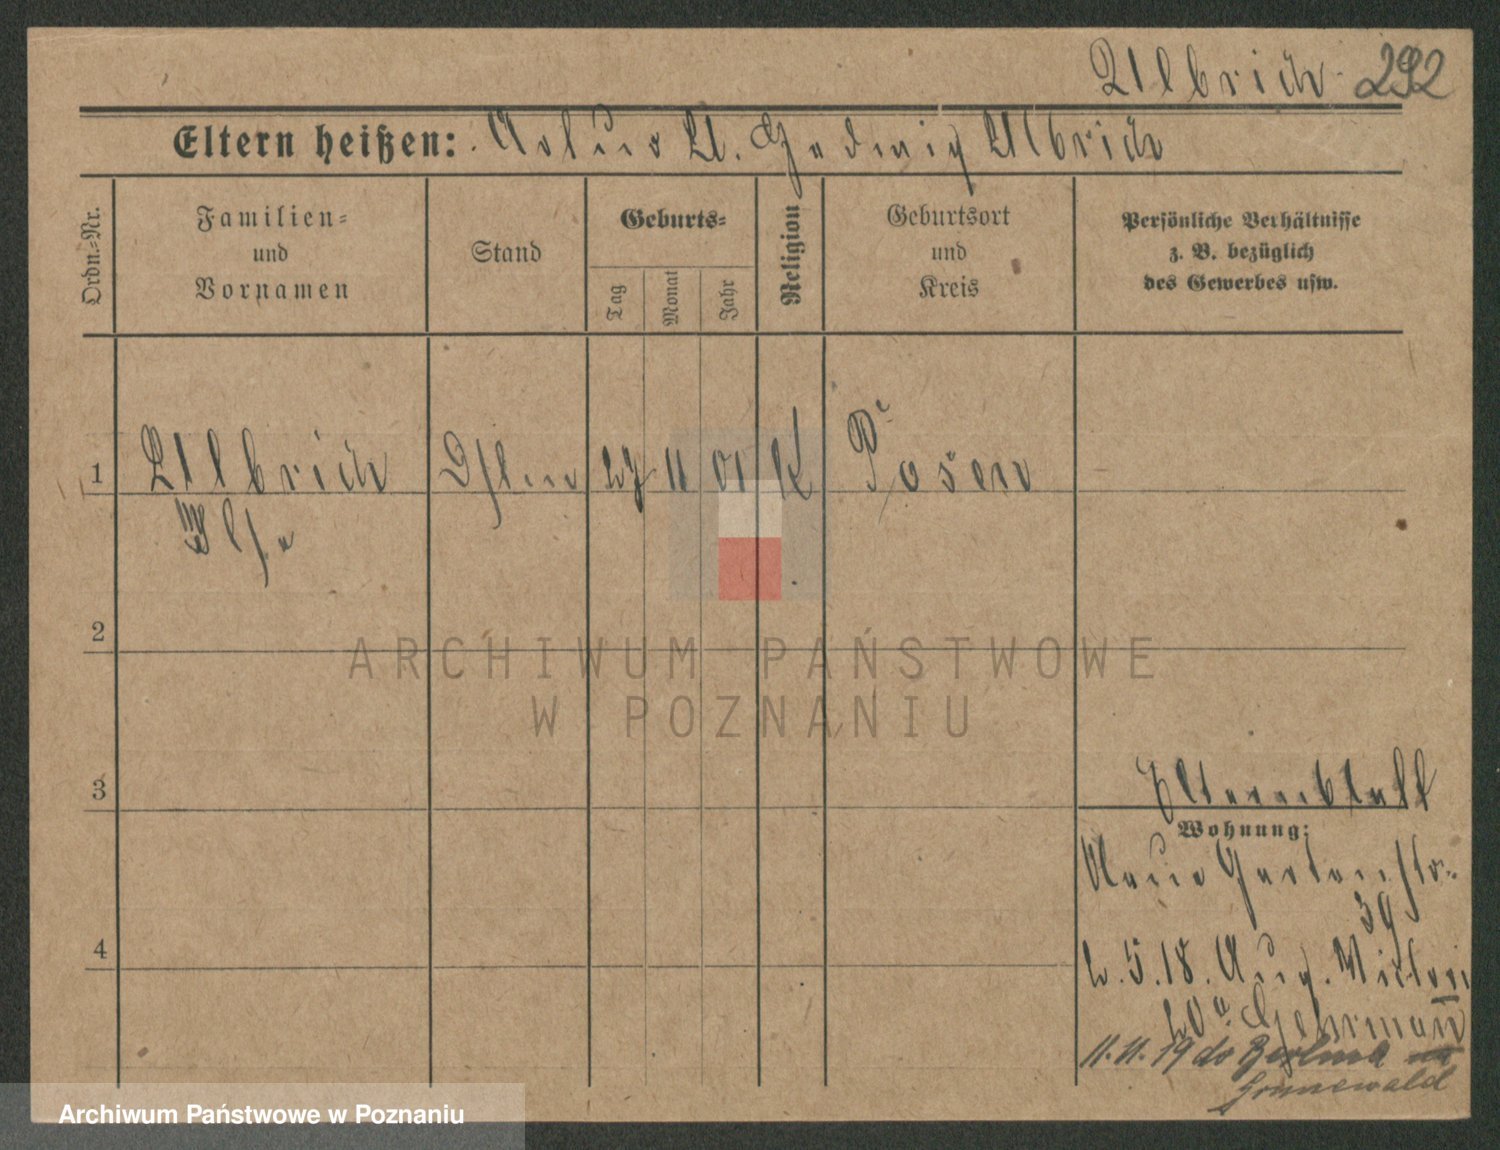 Ulbrich 292
Eltern heißen: Artur u. Hedwig Ulbrich
Ordn.-Nr.
Familien-
und
Vornamen
Stand
Geburts-
Tag
Monat
Jahr
Religion
Geburtsort
und
Kreis
Persönliche Verhältnisse
z. B. bezüglich
des Gewerbes usw.
1 Ulbrich 11 01 K Posen
Ilse
2
ARCHIWUM PAŃSTWOWE
W POZNANIU
3
Wohnung:
Neue Gartenstr.
39
2.5.18. Aug. Viktori
20a Gehrmann
11.11.19 do
4
Archiwum Państwowe w Poznaniu